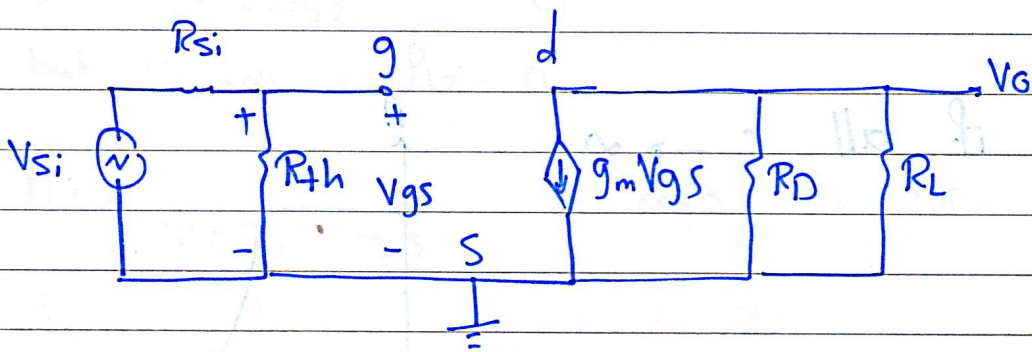 Rsi g d VO
Vsi + Rth - + Vgs - gmVgs RD RL
S